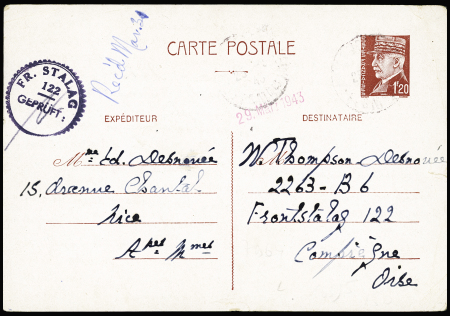 FR. STALAG
122
GEPRÜFT:
Rec'd Mar 30
CARTE POSTALE
1F20
29. MRZ. 1943
EXPÉDITEUR
DESTINATAIRE
Mme Ed. Desnouée
15, Avenue Chantal
Nice
Apes Mmes
W. Thompson-Desnouée
2263-B 6
Frontstalag 122
Compiègne
Oise